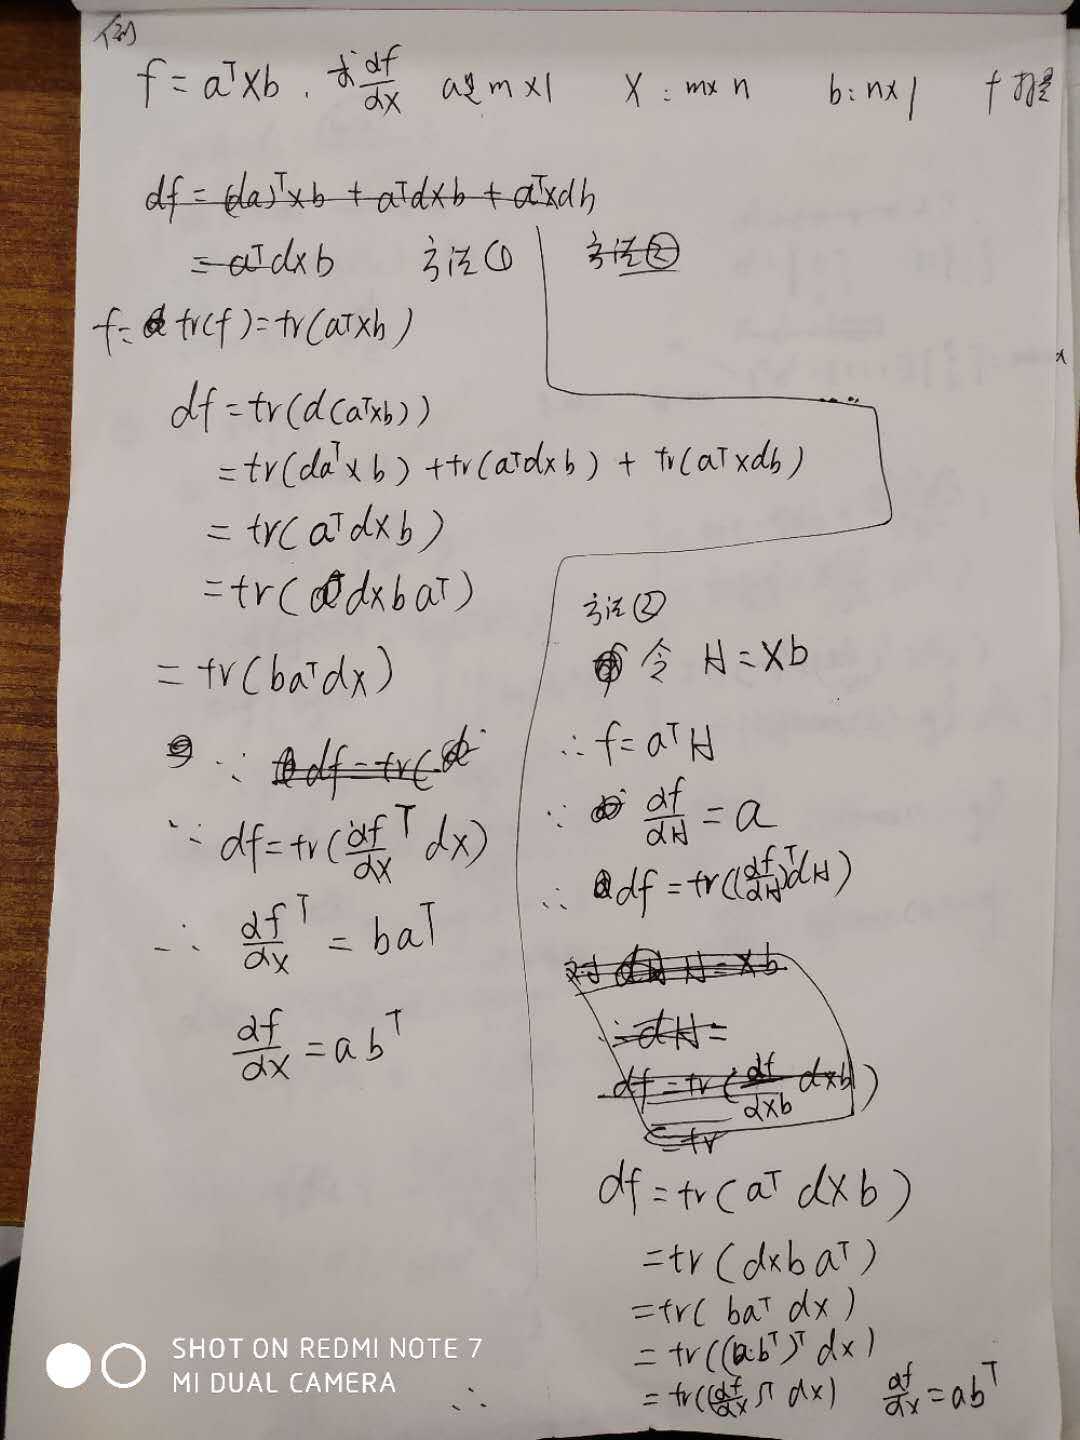 例
f = aᵀXb . 求 df/dX a是 m×1 X : m×n b : n×1 f 标量
df = (da)ᵀXb + aᵀdXb + aᵀXdb
= aᵀdXb 方法①
f = tr(f) = tr(aᵀXb)
df = tr(d(aᵀXb))
= tr(daᵀXb) + tr(aᵀdXb) + tr(aᵀXdb)
= tr(aᵀdXb)
= tr(dXbaᵀ)
= tr(baᵀdX)
∵ df = tr(
∵ df = tr(df/dXᵀ dX)
∴ df/dXᵀ = baᵀ
df/dX = abᵀ
方法②
方法②
令 H = Xb
∴ f = aᵀH
∵ df/dH = a
∴ df = tr((df/dH)ᵀdH)
对 H = Xb
∴ dH =
df = tr(df/dXb dXb)
= tr
df = tr(aᵀ dXb)
= tr(dXbaᵀ)
= tr(baᵀ dX)
= tr((abᵀ)ᵀ dX)
∴ = tr((df/dX)ᵀ dX) df/dX = abᵀ
SHOT ON REDMI NOTE 7
MI DUAL CAMERA